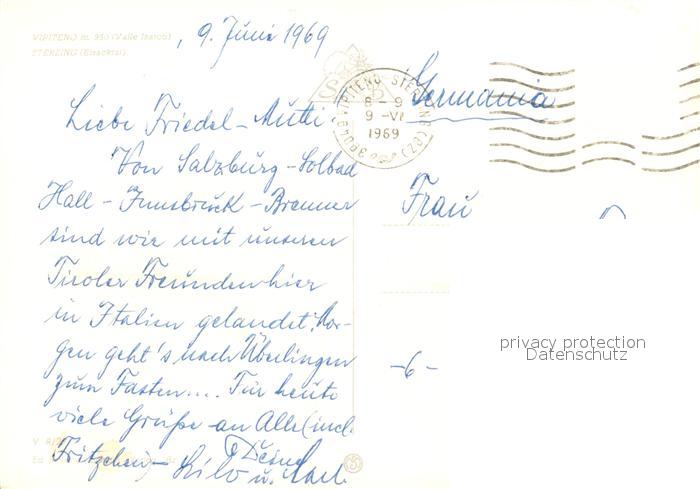 VIPITENO m. 950 (Valle Isarco)
STERZING (Eisacktal)
, 9. Juni 1969
Liebe Friedel-Mutti!
Von Salzburg-Solbad
Hall - Innsbruck - Brenner
sind wir mit unseren
Tiroler Freunden hier
in Italien gelandet. Mor-
gen geht's nach Überlingen
zum Fasten.... Für heute
viele Grüße an Alle (incl.
Fritzchen) -
u.
VIPITENO STERZING
8 - 9
9 - VI
1969
39049 (BZ)
Germania
Frau
-6-
privacy protection
Datenschutz